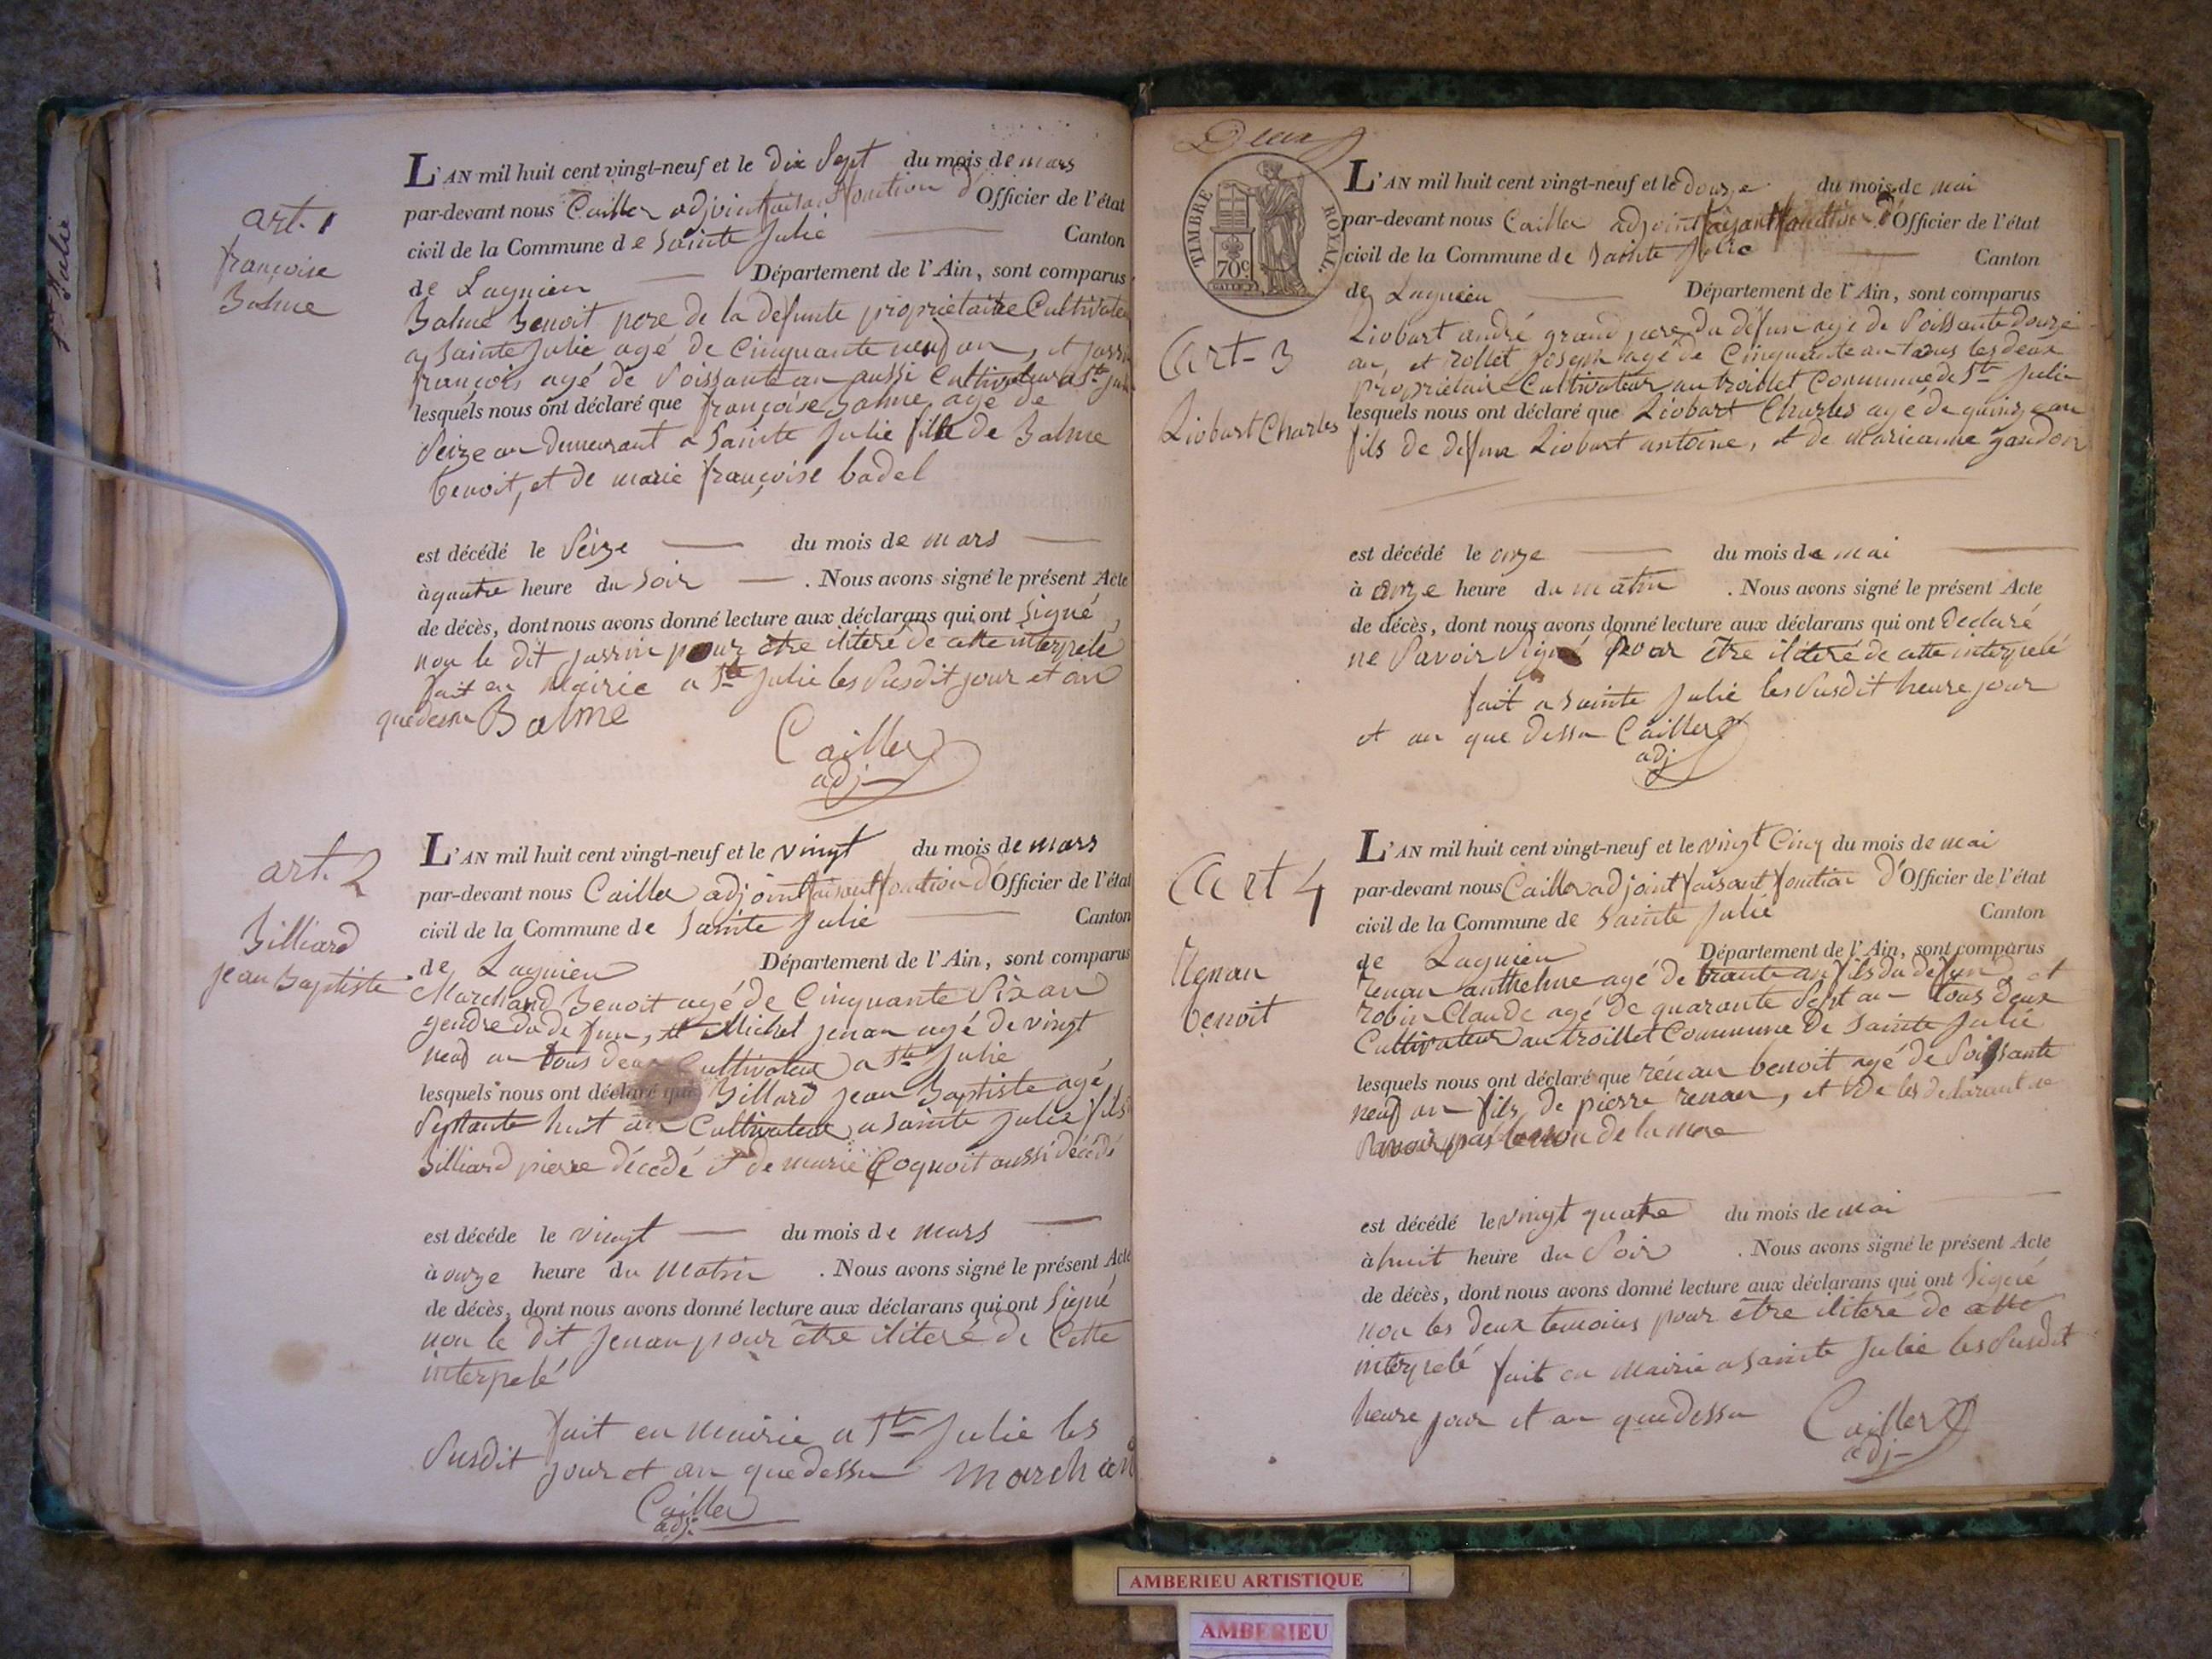 Ste Julie
art. 1
françoise
Balme
L'AN mil huit cent vingt-neuf et le dix Sept du mois de mars
par-devant nous Cailler adjoint faisant fonction d'Officier de l'état
civil de la Commune de Sainte Julie Canton
de Lagnieu Département de l'Ain, sont comparus
Balme Benoit pere de la defunte propriétaire Cultivateur
a Sainte Julie agé de Cinquante neuf an, et
françois agé de Soissante an aussi Cultivateur a Ste Julie
lesquels nous ont déclaré que françoise Balme agé de
Seize an demeurant a Sainte Julie fille de Balme
benoit, et de marie françoise badel
est décédé le Seize du mois de mars
à quatre heure du Soir . Nous avons signé le présent Acte
de décès, dont nous avons donné lecture aux déclarans qui ont Signé,
non le dit pour être iliteré de cette interpelé
fait en Mairie a Ste Julie les Susdit jour et an
que dessu Balme
Cailler
adj
art. 2
Billiard
jean Baptiste
L'AN mil huit cent vingt-neuf et le vingt du mois de mars
par-devant nous Cailler adjoint faisant fonction d'Officier de l'état
civil de la Commune de Sainte Julie Canton
de Lagnieu Département de l'Ain, sont comparus
Marchand Benoit agé de Cinquante Six an
gendre du defun, et Michel jenan agé de vingt
neuf an tous deux Cultivateur a Ste Julie
lesquels nous ont déclaré que Billard jean Baptiste agé
Septante huit an Cultivateur a Sainte Julie fils
Billiard pierre décédé et de marie Coquoit aussi décédé
est décédé le vingt du mois de mars
à onze heure du Matin . Nous avons signé le présent Acte
de décès, dont nous avons donné lecture aux déclarans qui ont Signé
non le dit Jenan pour être iliteré de Cette
interpelé
fait en mairie a Ste Julie les
Susdit jour et an que dessu marchan
Cailler
adj.
Deux
TIMBRE ROYAL.
70c.
Art 3
Liobart Charles
L'AN mil huit cent vingt-neuf et le douze du mois de mai
par-devant nous Cailler adjoint faisant fonction d'Officier de l'état
civil de la Commune de Sainte Julie Canton
de Lagnieu Département de l'Ain, sont comparus
Liobart andré grand pere du defun agé de Soissante douze
an et rollet joseph agé de Cinquante an tous les deux
propriétaire Cultivateur au troillet Commune de Ste Julie
lesquels nous ont déclaré que Liobart Charles agé de quinze an
fils de defun Liobart antoine, et de marieanne gandon
est décédé le onze du mois de mai
à onze heure du matin . Nous avons signé le présent Acte
de décès, dont nous avons donné lecture aux déclarans qui ont declaré
ne Savoir Signé pour être iliteré de cette interpelé
fait a Sainte Julie les Susdit heure jour
et an que dessu Cailler
adj
Art 4
Renan
benoit
L'AN mil huit cent vingt-neuf et le vingt Cinq du mois de mai
par-devant nous Cailler adjoint faisant fonction d'Officier de l'état
civil de la Commune de Sainte Julie Canton
de Lagnieu Département de l'Ain, sont comparus
renan anthelme agé de trante an fils du defun, et
robin Claude agé de quarante Sept an tous deux
Cultivateur au troillet Commune de Sainte Julie
lesquels nous ont déclaré que rénan benoit agé de Soissante
neuf an fils de pierre renan, et de les declarant ne
Savoir pas le nom de la mere
est décédé le vingt quatre du mois de mai
à huit heure du Soir . Nous avons signé le présent Acte
de décès, dont nous avons donné lecture aux déclarans qui ont Signé
non les deux temoins pour être iliteré de cette
interpelé fait en Mairie a Sainte Julie les Susdit
heure jour et an que dessu Cailler
adj
AMBERIEU ARTISTIQUE
AMBERIEU